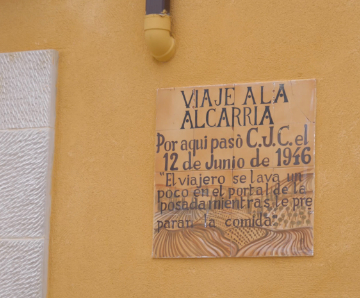 VIAJE A LA
ALCARRIA
Por aqui pasò C.J.C. el
12 de Junio de 1946
"El viajero se lava un
poco en el portal de la
posada mientras le pre
paran la comida."